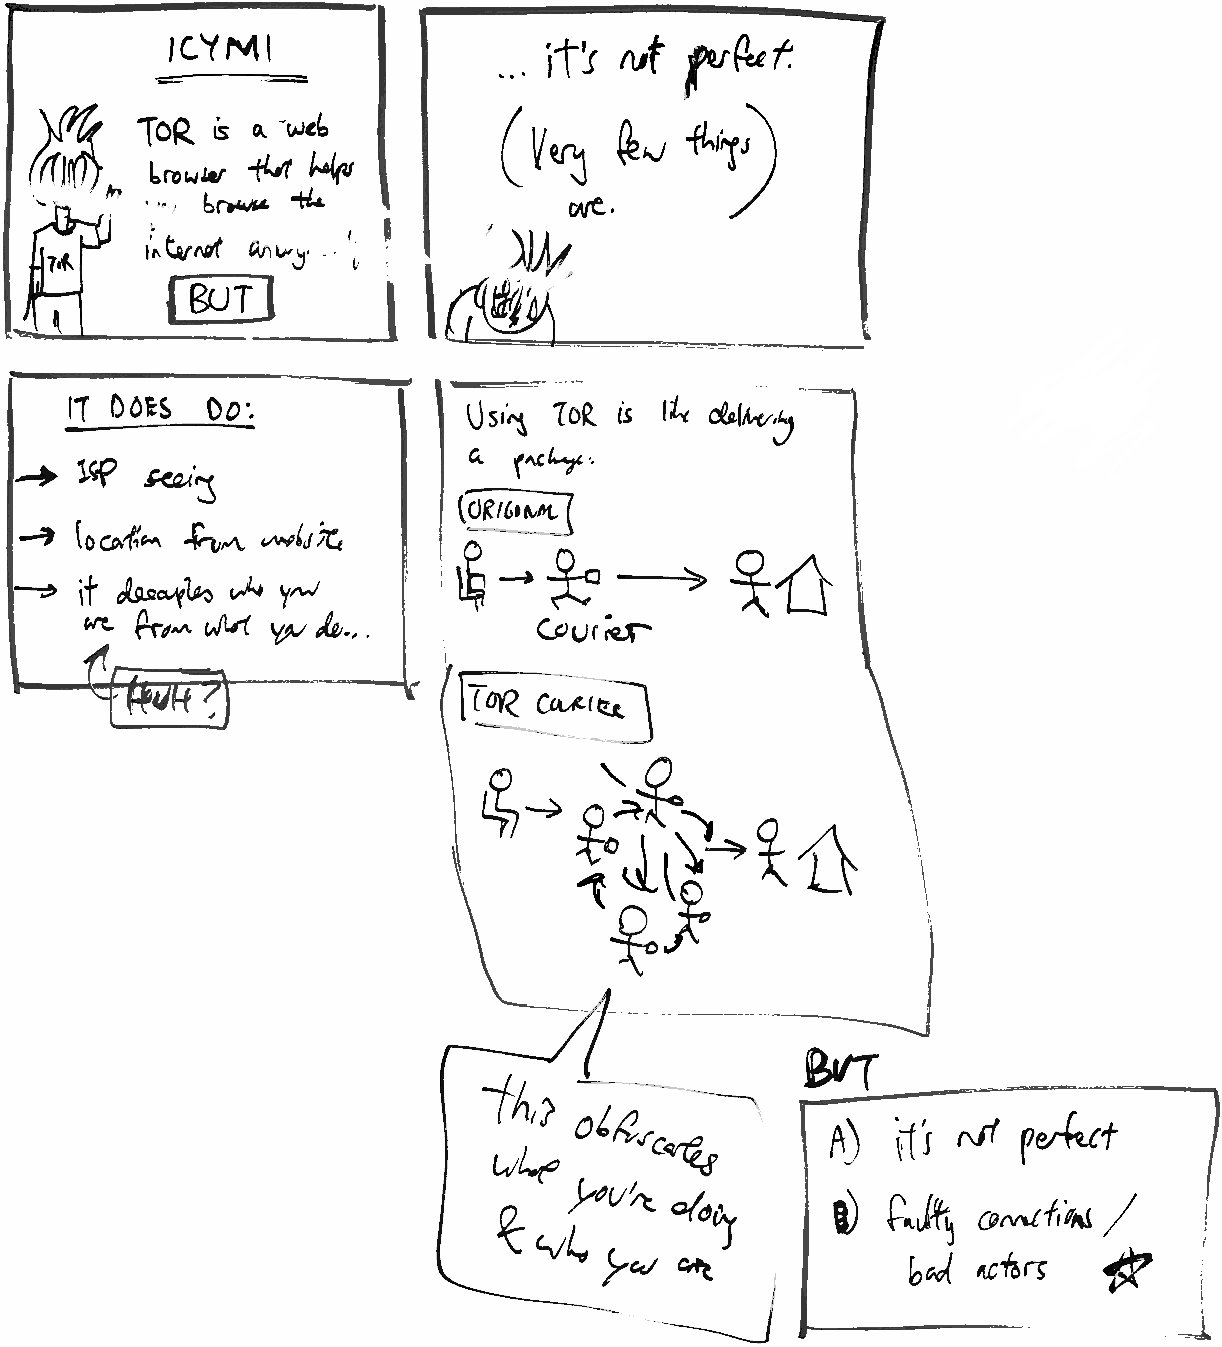 ICYMI
TOR is a web
browser that helps
browse the
internet
TOR
BUT
... it's not perfect.
(Very few things
are.)
IT DOES DO:
→ ISP seeing
→ location from website
→ it decouples who you
are from what you do...
HUH?
Using TOR is like delivering
a package.
ORIGINAL
courier
TOR
this obfuscates
what you're doing
& who you are
BUT
A) it's not perfect
B) faulty connections /
bad actors